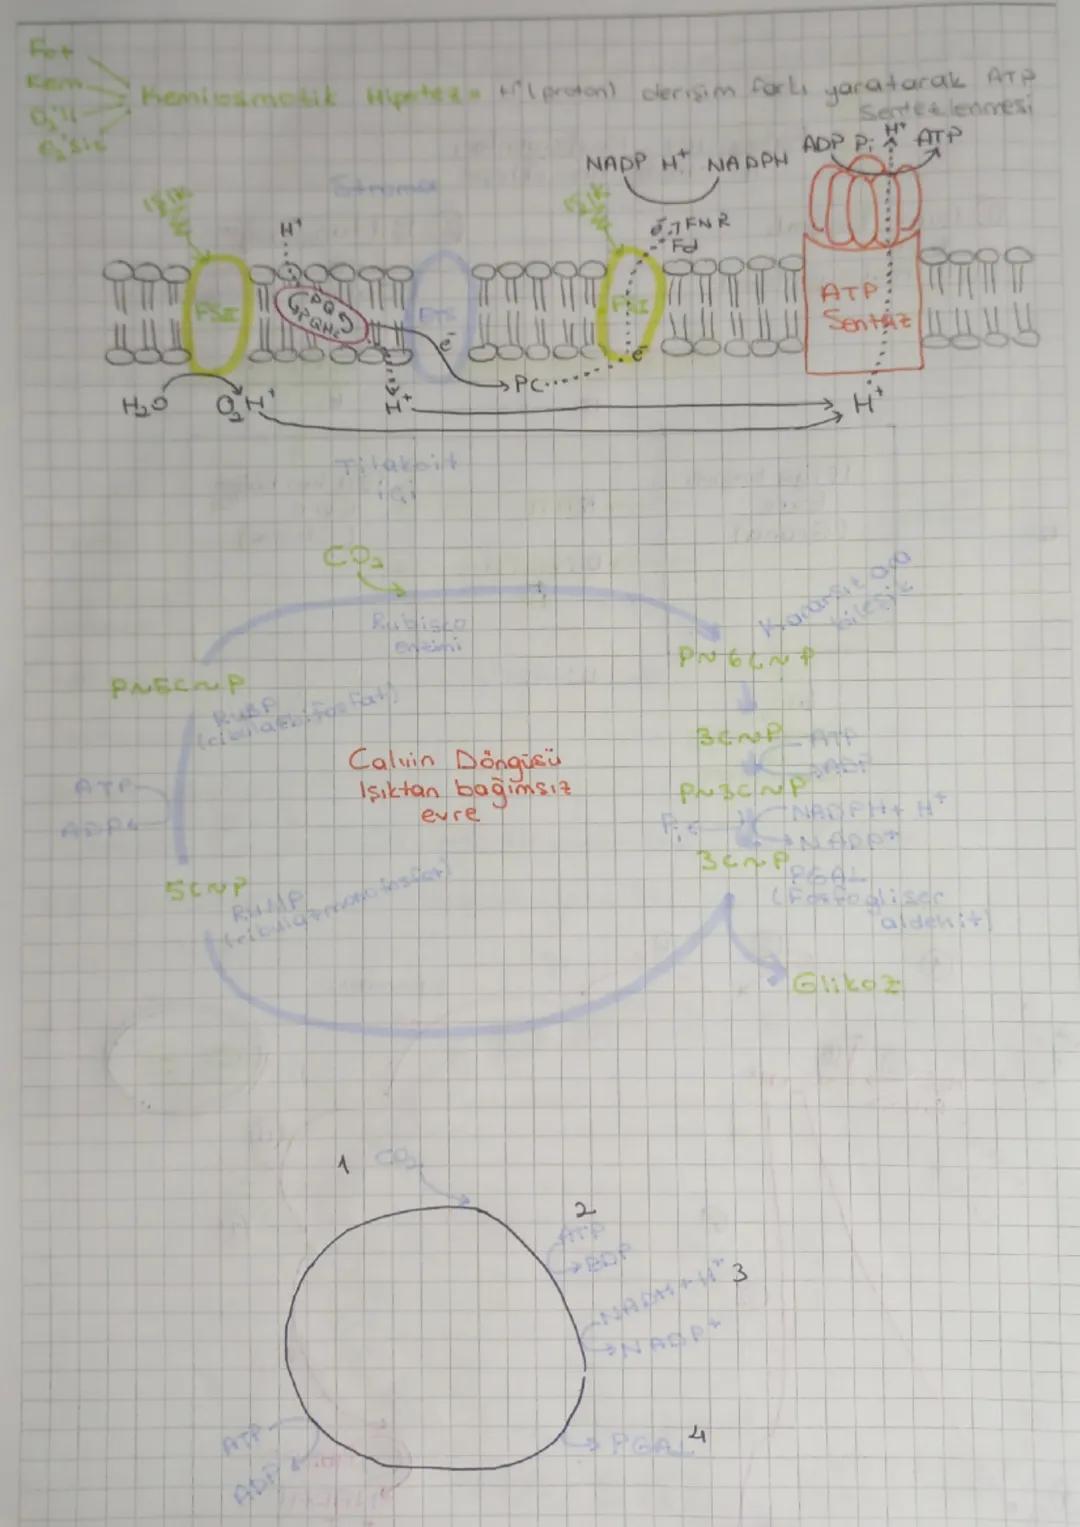 Fot
Kem
O₂'li
O₂'siz
Kemiosmotik Hipotez = H⁺(proton) derişim farkı yaratarak ATP
Sentezlenmesi
NADP H⁺ NADPH
ADP Pi H⁺ ATP
Stroma
Işık
H⁺
Işık
e⁻ FNR
Fd
PSII
PQ
PQH₂
ETS
e⁻
PSI
e⁻
ATP
Sentaz
H₂O O₂ H⁺
H⁺
PC
H⁺
Tilakoit
içi
CO₂
Rubisco
enzimi
Kararsız ara
bileşik
P~6C~P
P~5C~P
RuBP
(ribülozbifosfat)
3C~P
ATP
ADP
Calvin Döngüsü
Işıktan bağımsız
evre
P~3C~P
ATP
ADP
Pi
NADPH + H⁺
NADP⁺
3C~P
PGAL
(Fosfogliser
aldehit)
5C~P
RuMP
(ribülozmonofosfat)
Glikoz
1 CO₂
2
ATP
NADH + H⁺ 3
NADP⁺
ATP
ADP
PGAL 4